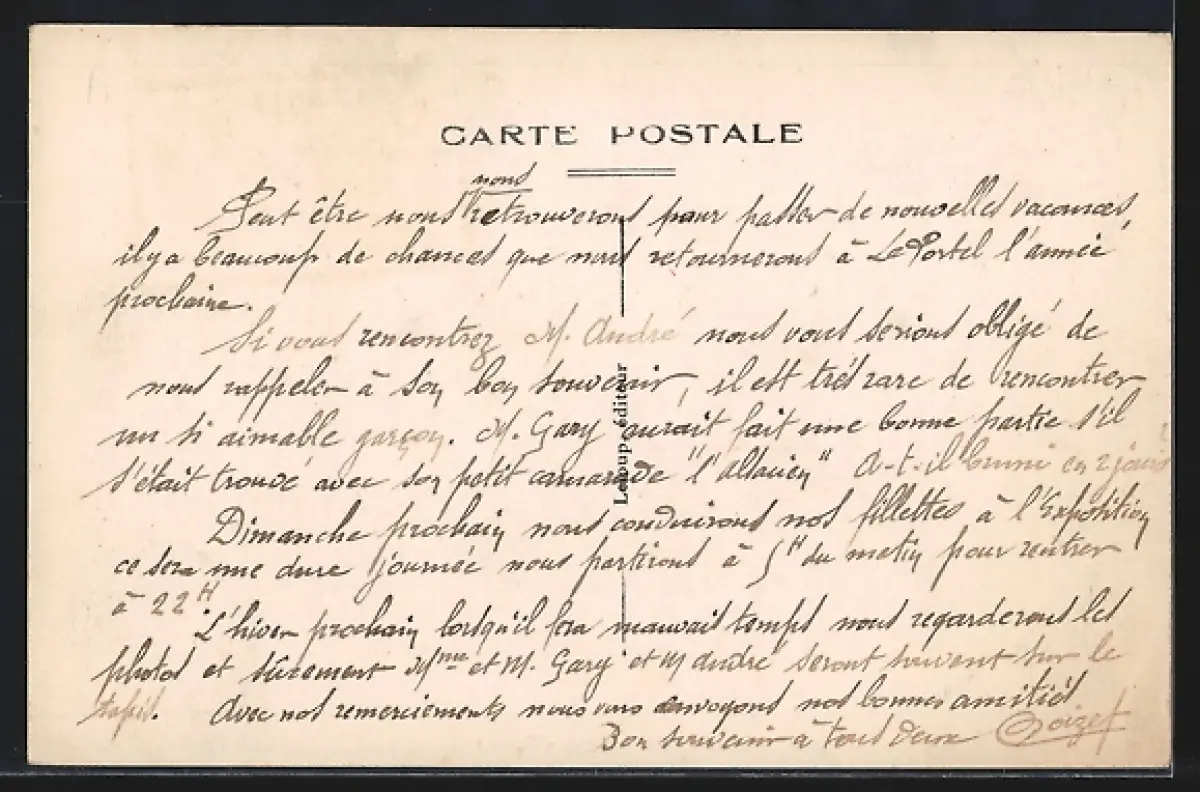 CARTE POSTALE
nous
Peut être nous retrouverons pour passer de nouvelles vacances,
il y a beaucoup de chances que nous retournerons à Le Portel l'année
prochaine.
Si vous rencontrez M. André nous vous serions obligé de
nous rappeler à son bon souvenir, il est très rare de rencontrer
un si aimable garçon. M. Gary aurait fait une bonne partie s'il
s'était trouvé avec son petit camarade "l'alsacien" A-t-il bruni en 2 jours?
Dimanche prochain nous conduirons nos fillettes à l'Exposition
ce sera une dure journée nous partirons à 5H du matin pour rentrer
à 22H.
L'hiver prochain lorsqu'il fera mauvais temps nous regarderons les
photos et sûrement Mme et M. Gary et M André seront souvent sur le
tapis. Avec nos remerciements nous vous envoyons nos bonnes amitiés
Bon souvenir à tous deux
Leloup, éditeur